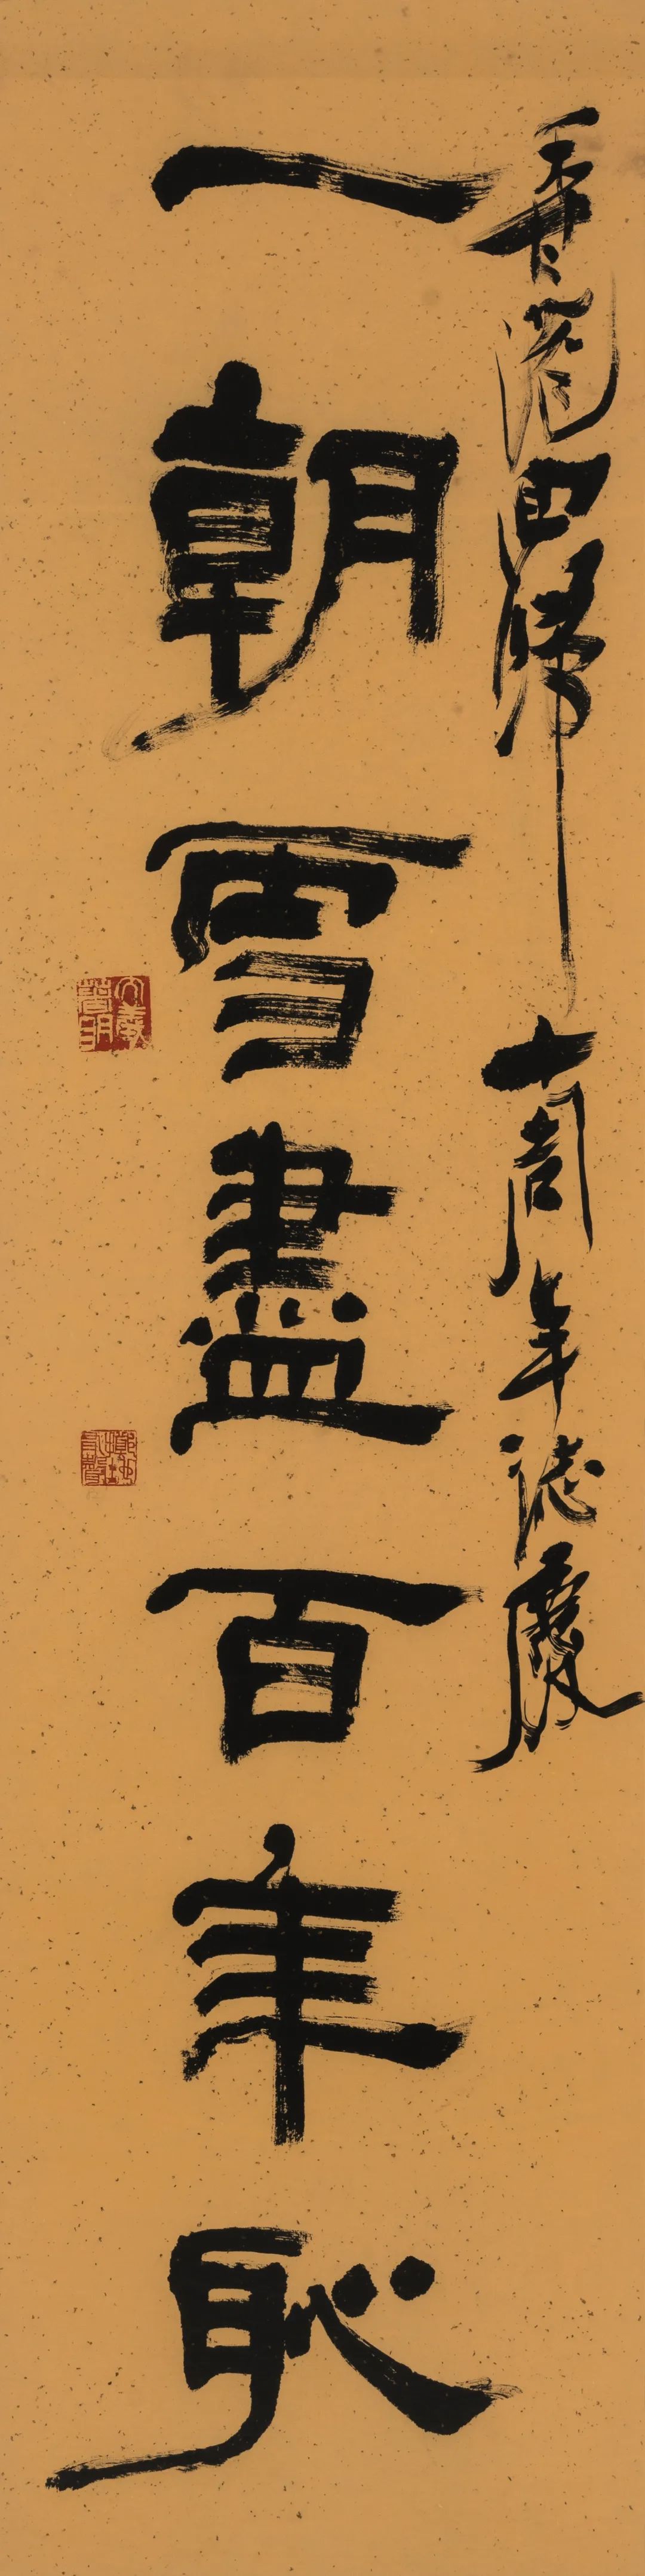 香港回歸十周年誌慶
一朝雪盡百年恥